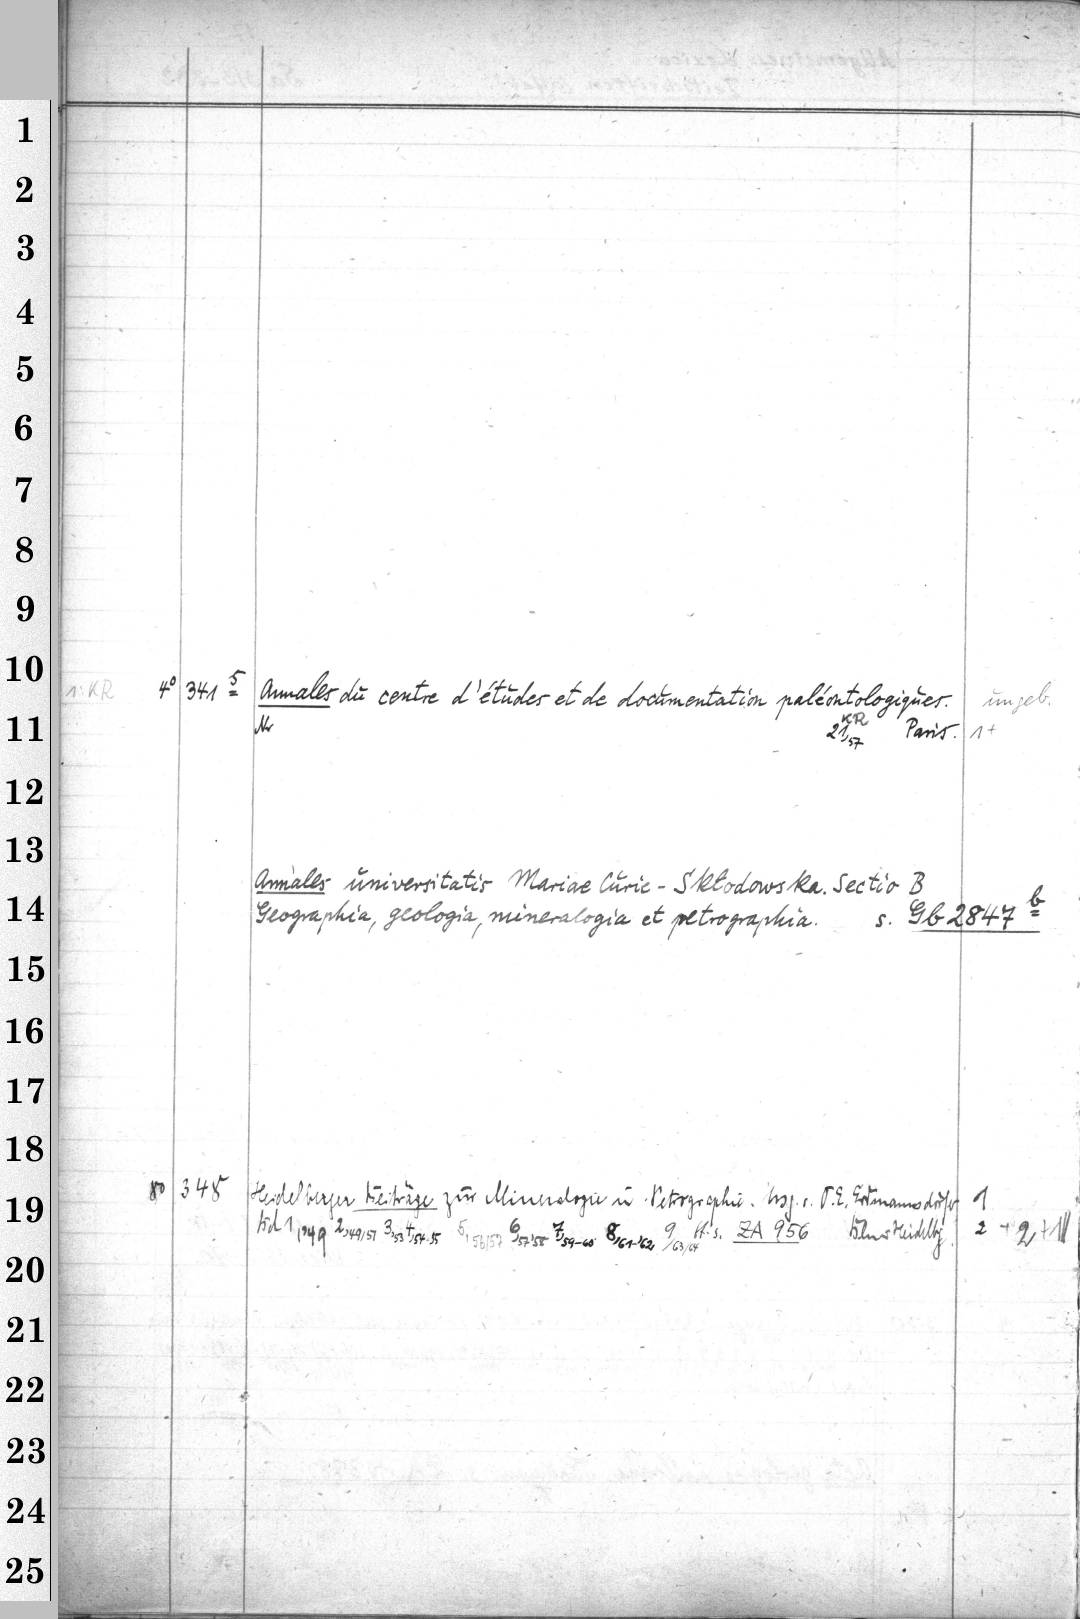 1
2
3
4
5
6
7
8
9
10
1: KR 4° 341 5 Annales du centre d'études et de documentation paléontologiques. ungeb.
11
Nr KR 21,57 Paris. 1+
12
13
Annales universitatis Mariae Curie-Skłodowska. Sectio B
14
Geographia, geologia, mineralogia et petrographia. s. Gb 2847 b
15
16
17
18
8° 348 Heidelberger Beiträge zur Mineralogie u. Petrographie. hsg. v. O.E. Erdmannsdörffer 1
19
Bd 1,1949 2,49/51 3,53 4,54-55 5,56/57 6,57-58 7,59-60 8,61-62 9,63/64 ff. s. ZA 956 2 + 2 + 1
20
21
22
23
24
25